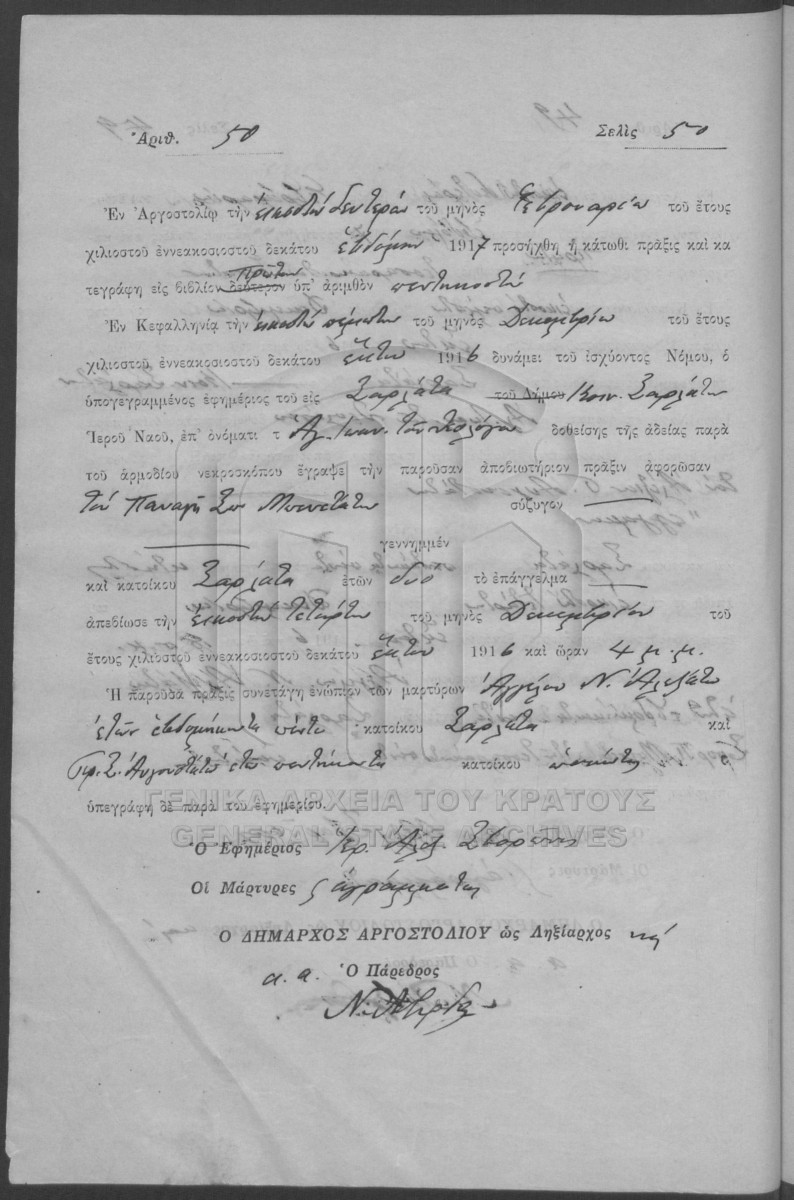 Ἀριθ. 50 Σελὶς 50
Ἐν Ἀργοστολίῳ τὴν εἰκοστὴν δευτέραν τοῦ μηνὸς Φεβρουαρίου τοῦ ἔτους
χιλιοστοῦ ἐννεακοσιοστοῦ δεκάτου ἑβδόμου 1917 προσήχθη ἡ κάτωθι πρᾶξις καὶ κα
τεγράφη εἰς βιβλίον δεύτερον πρῶτον ὑπ' ἀριθμὸν πεντηκοστὴ
Ἐν Κεφαλληνίᾳ τὴν εἰκοστὴν πέμπτην τοῦ μηνὸς Δεκεμβρίου τοῦ ἔτους
χιλιοστοῦ ἐννεακοσιοστοῦ δεκάτου ἕκτου 1916 δυνάμει τοῦ ἰσχύοντος Νόμου, ὁ
ὑπογεγραμμένος ἐφημέριος τοῦ εἰς Ζαρλάτα τοῦ Δήμου Κοιν. Ζαρλάτων
Ἱεροῦ Ναοῦ, ἐπ' ὀνόματι τ Ἁγ. Ἰωάν. τοῦ Θεολόγου δοθείσης τῆς ἀδείας παρὰ
τοῦ ἁρμοδίου νεκροσκόπου ἔγραψε τὴν παροῦσαν ἀποβιωτήριον πρᾶξιν ἀφορῶσαν
τὸν Παναγῆ Σπ Μπενετάτον σύζυγον
γεννημμέν
καὶ κατοίκου Ζαρλάτα ἐτῶν δύο τὸ ἐπάγγελμα
ἀπεβίωσε τὴν εἰκοστὴν τετάρτην τοῦ μηνὸς Δεκεμβρίου τοῦ
ἔτους χιλιοστοῦ ἐννεακοσιοστοῦ δεκάτου ἕκτου 1916 καὶ ὥραν 4 μ.μ.
Ἡ παροῦσα πρᾶξις συνετάγη ἐνώπιον τῶν μαρτύρων Ἀγγέλου Ν. Ἀλεξάτο
ἐτῶν ἑβδομήκοντα πέντε κατοίκου Ζαρλάτα καὶ
Γερ. Σ. Αὐγουστάτο ἐτῶν πεντήκοντα κατοίκου
ὑπεγράφη δὲ παρὰ τοῦ ἐφημερίου.
ΓΕΝΙΚΑ ΑΡΧΕΙΑ ΤΟΥ ΚΡΑΤΟΥΣ
GENERAL STATE ARCHIVES
Ὁ Ἐφημέριος Ἱερ.
Οἱ Μάρτυρες ἀγράμματοι
Ο ΔΗΜΑΡΧΟΣ ΑΡΓΟΣΤΟΛΙΟΥ ὡς Ληξίαρχος
α. α. Ὁ Πάρεδρος